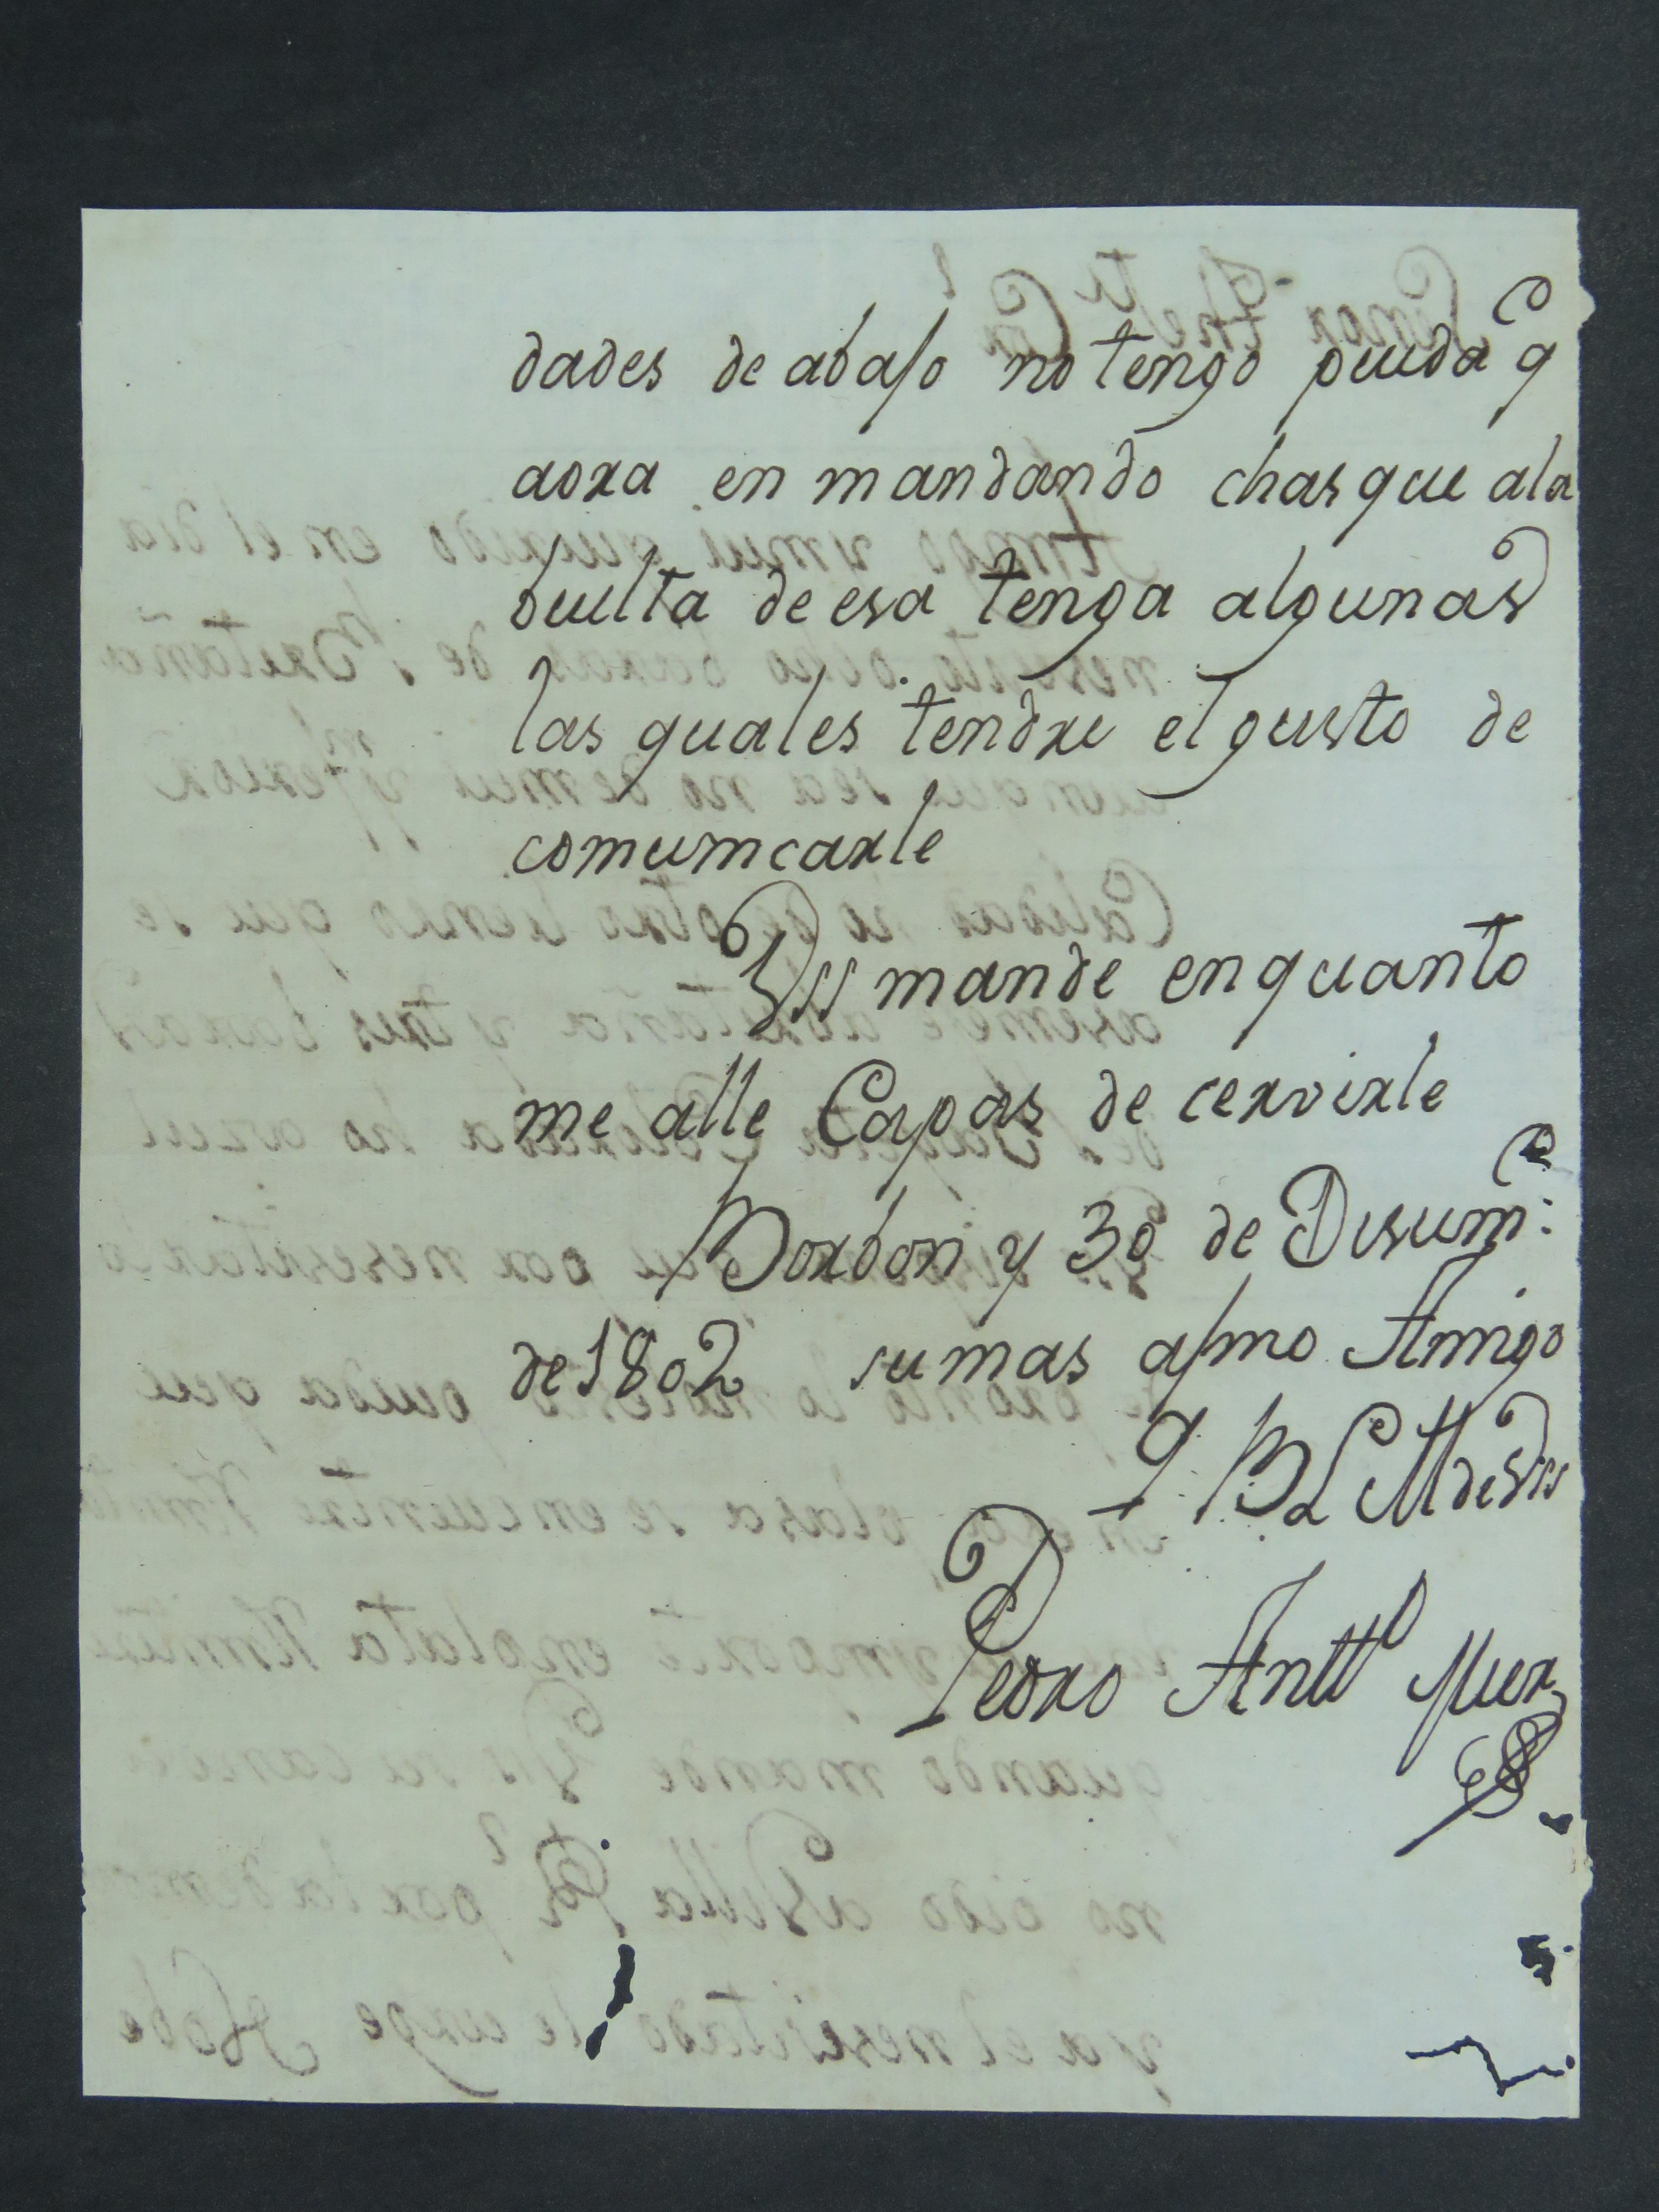 dades de abajo no tengo pueda q^e
aora en mandando chasque ala
buelta de esa tenga algunas
las quales tendre el gusto de
comunicarle
Vss mande en quanto
me alle Capas de cervirle
Borbon y 30 de Disiem^e:
de 1802 su mas afmo Amigo
Q B L M de Vss
Pedro Antt^o